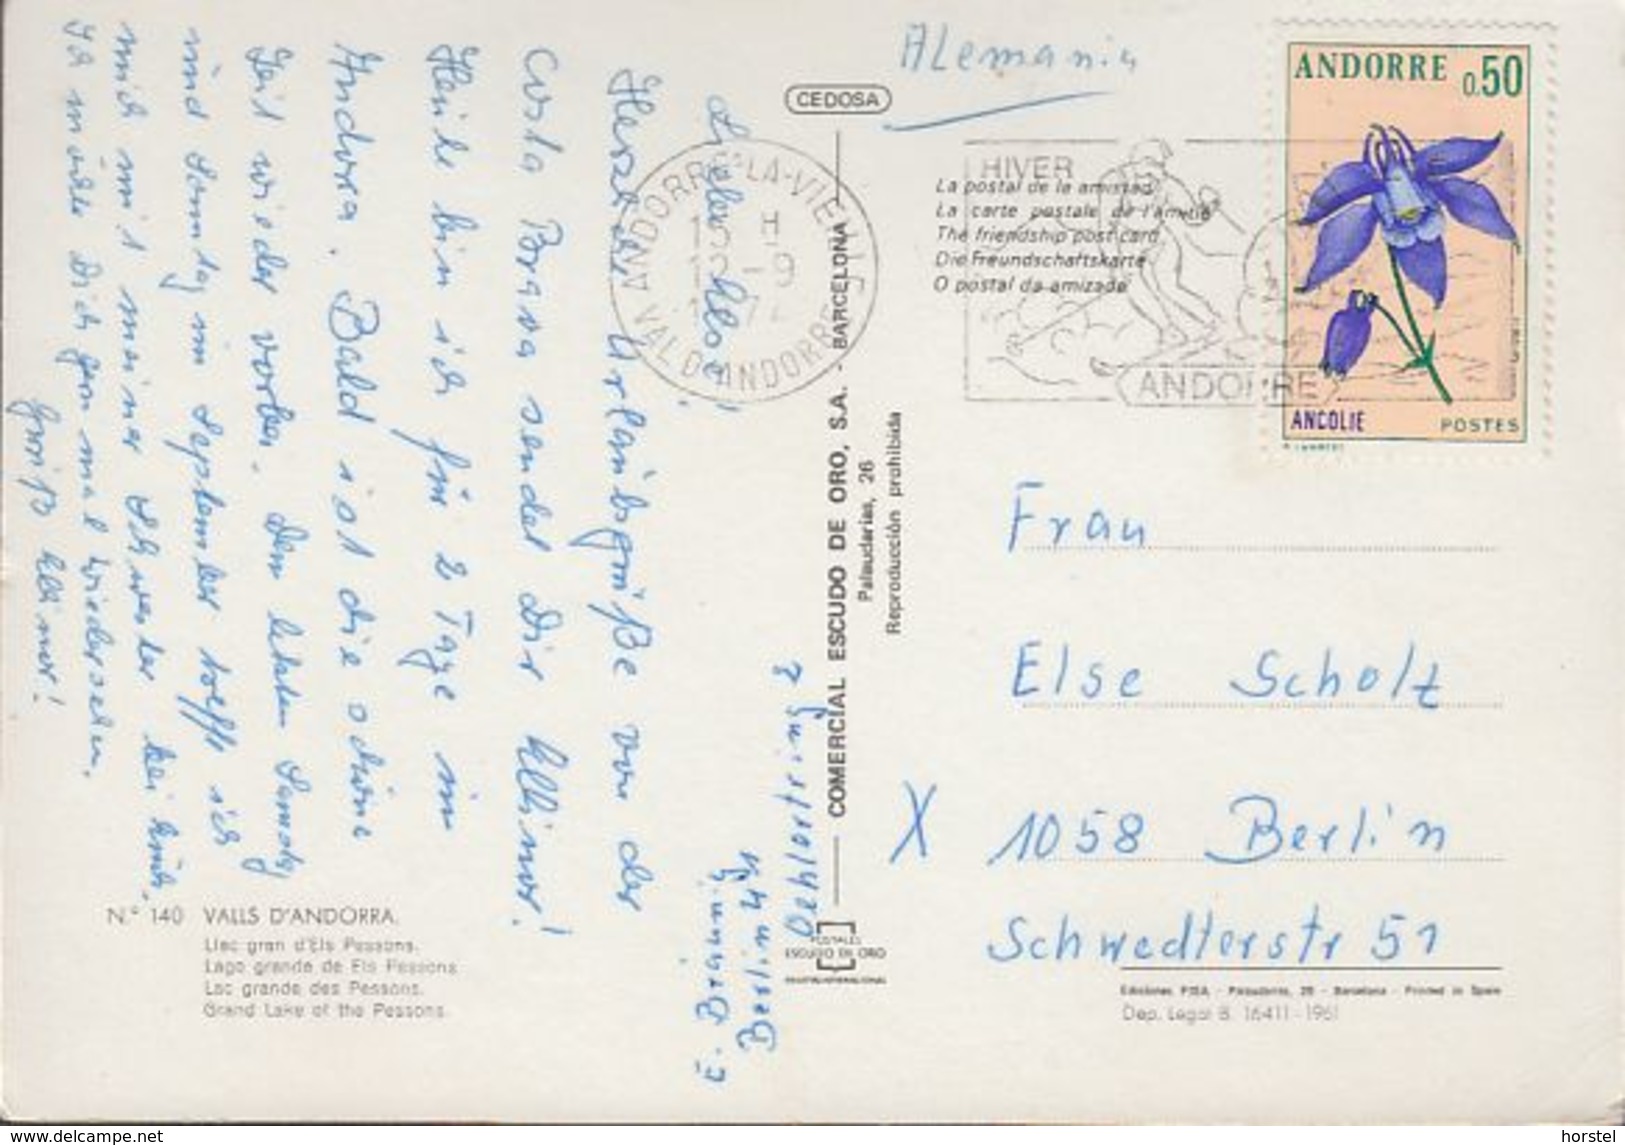 Alemania
CEDOSA
ANDORRE 0.50
ANCOLIE
POSTES
ANDORRE-LA-VIEILLE
VAL D'ANDORRE
HIVER
ANDORRE
La postal de la amistad
La carte postale de l'amitié
The friendship post card
Die Freundschaftskarte
O postal da amizade
Herzliche Urlaubsgrüße von der
Costa Brava sendet Dir Ellinor!
Heute bin ich für 2 Tage in
Andorra. Bald ist die schöne
Zeit wieder vorbei. Den letzten Samstag
und Sonntag im September trefft sich
mich mit meiner Schwester bei
Ich möchte Dich gern mal wiedersehen.
Gruß Ellinor!
COMERCIAL ESCUDO DE ORO, S.A. - BARCELONA
Palaudarias, 26
Reproducción prohibida
Frau
Else Scholz
X 1058 Berlin
Schwedterstr 51
N.° 140 VALLS D'ANDORRA.
Llac gran d'Els Pessons.
Lago grande de Els Pessons.
Lac grande des Pessons.
Grand Lake of the Pessons.
POSTALES
ESCUDO DE ORO
Berlin 47
Ediciones FISA - Palaudarias, 26 - Barcelona - Printed in Spain
Dep. Legal B. 16411 - 1961
horstel
www.delcampe.net